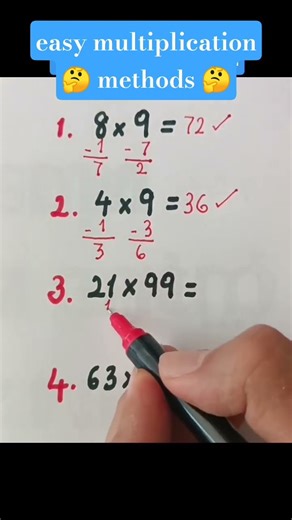 easy multiplication
🤔 methods 🤔
1. 8 × 9 = 72 ✓
-1 -7
7 2
2. 4 × 9 = 36 ✓
-1 -3
3 6
3. 21 × 99 =
1
4. 63 ×